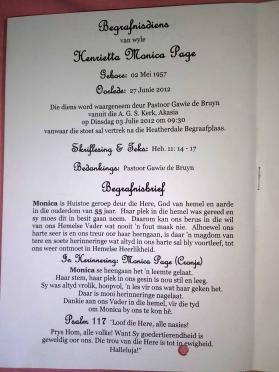 Begrafnisdiens
van wyle
Henrietta Monica Page
Gebore: 02 Mei 1957
Oorlede: 27 Junie 2012
Die diens word waargeneem deur Pastoor Gawie de Bruyn
vanuit die A. G. S. Kerk, Akasia
op Dinsdag 03 Julie 2012 om 09:30
vanwaar die stoet sal vertrek na die Heatherdale Begraafplaas.
Skriflesing & Teks: Heb. 11: 14 - 17
Bedankings: Pastoor Gawie de Bruyn
Begrafnisbrief
Monica is Huistoe geroep deur die Here, God van hemel en aarde
in die ouderdom van 55 jaar. Haar plek in die hemel was gereed en
sy moes dit in besit gaan neem. Daarom kon ons berus in die wil
van ons Hemelse Vader wat nooit 'n fout maak nie. Alhoewel ons
harte seer is en ons treur oor haar heengaan, is daar 'n magdom van
tere en soete herinneringe wat altyd in ons harte sal bly voortleef, tot
ons weer ontmoet in Hemelse Heerlikheid.
In Herinnering: Monica Page (Cronje)
Monica se heengaan het 'n leemte gelaat.
Haar stem, haar plek in ons gesin is nou stil en leeg.
Sy was altyd vrolik, hoopvol, 'n les vir ons wat haar geken het.
Daar is mooi herinneringe nagelaat.
Dankie aan ons Vader in die hemel, vir die tyd
om Monica by ons te kon hê.
Psalm 117 "Loof die Here, alle nasies!
Prys Hom, alle volke! Want Sy goedertierendheid is
geweldig oor ons. Die trou van die Here is tot in ewigheid.
Halleluja!"